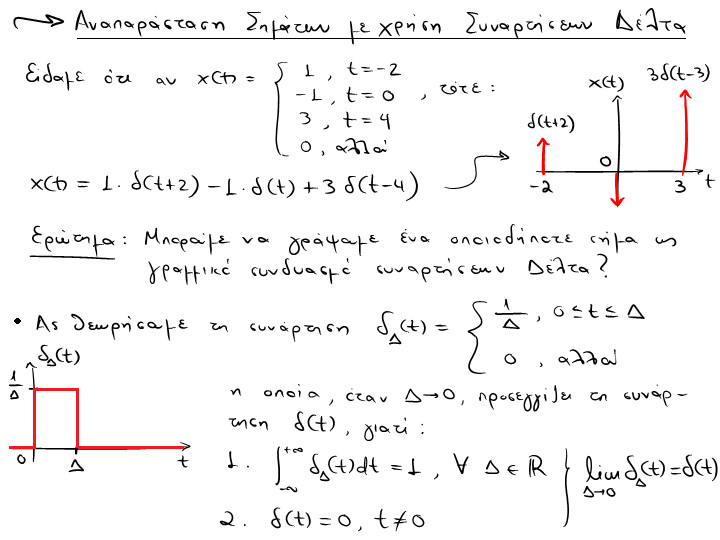 Αναπαράσταση Σημάτων με χρήση Συναρτήσεων Δέλτα
Είδαμε ότι αν x(t) = { 1 , t=-2
-1 , t=0
3 , t=4
0, αλλού
, τότε :
x(t) = 1· δ(t+2) - 1· δ(t) + 3 δ(t-4)
x(t)
3δ(t-3)
δ(t+2)
0
-2
3
t
Ερώτημα : Μπορούμε να γράψουμε ένα οποιοδήποτε σήμα ως
γραμμικό συνδυασμό συναρτήσεων Δέλτα?
• Ας θεωρήσουμε τη συνάρτηση δ_Δ(t) = { 1/Δ , 0≤t≤Δ
0 , αλλού
δ_Δ(t)
1/Δ
0
Δ
t
η οποία, όταν Δ→0, προσεγγίζει τη συνάρ-
τηση δ(t), γιατί :
1. ∫_{-∞}^{+∞} δ_Δ(t)dt = 1 , ∀ Δ ∈ ℝ
2. δ(t) = 0, t≠0
} lim_{Δ→0} δ_Δ(t) = δ(t)